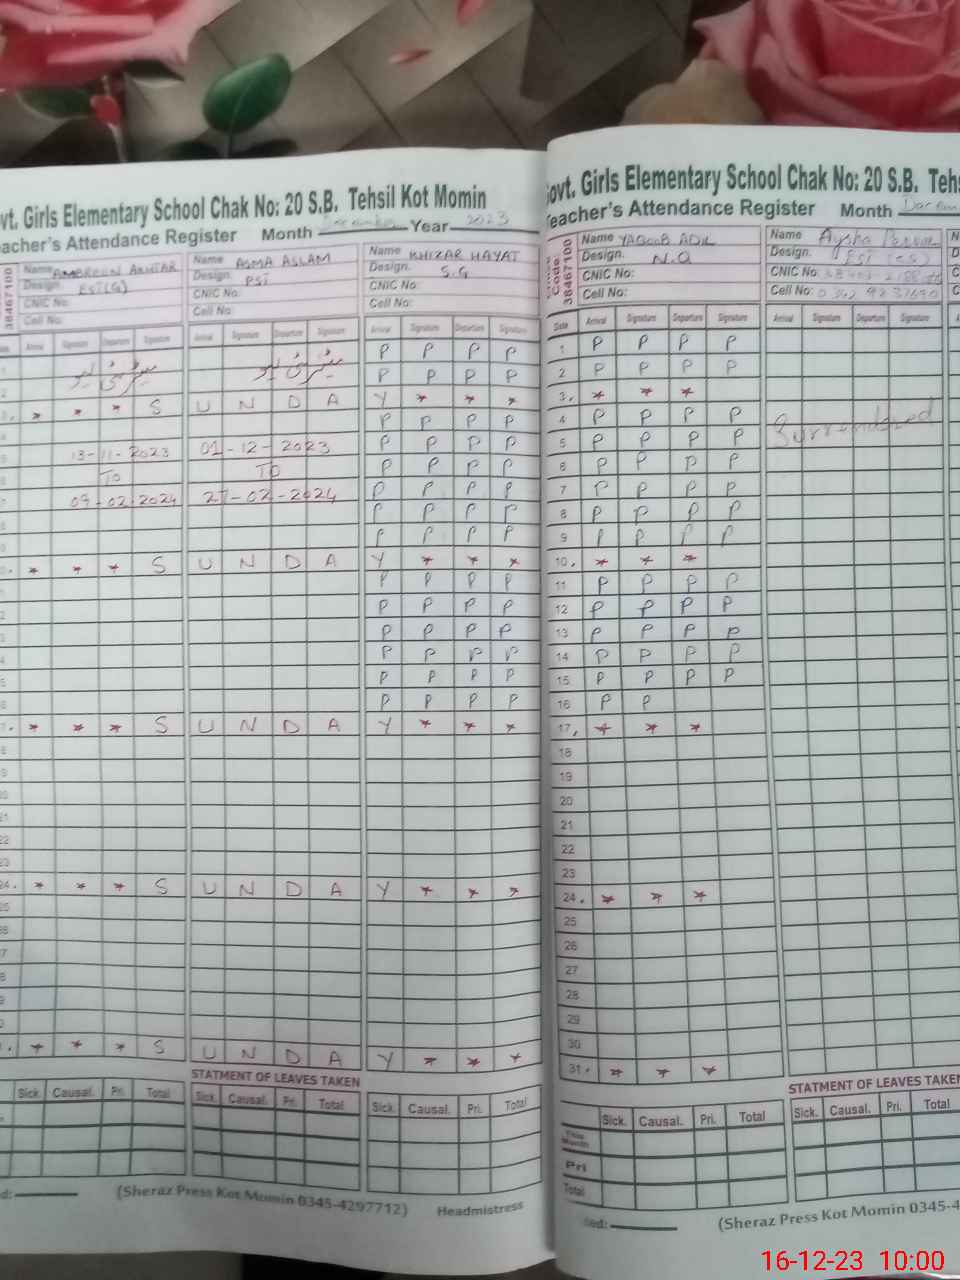 vt. Girls Elementary School Chak No: 20 S.B. Tehsil Kot Momin
eacher's Attendance Register Month December Year 2023
38467100
Name AMBREEN AKHTAR
Design. EST(G)
CNIC No:
Cell No:
Name ASMA ASLAM
Design. PST
CNIC No:
Cell No:
Name KHIZAR HAYAT
Design. S.G
CNIC No:
Cell No:
Arrival Signature Departure Signature Arrival Signature Departure Signature Arrival Signature Departure Signature
P P P P
P P P P
* * * S U N D A Y * * *
P P P P
13-11-2023 01-12-2023 P P P P
TO TO P P P P
09-02-2024 27-02-2024 P P P P
P P P P
P P P P
* * * S U N D A Y * * *
P P P P
P P P P
P P P P
P P P P
P P P P
P P P P
* * * S U N D A Y * * *
* * * S U N D A Y * * *
* * * S U N D A Y * * *
STATMENT OF LEAVES TAKEN
Sick. Causal. Pri. Total Sick. Causal. Pri. Total Sick. Causal. Pri. Total
(Sheraz Press Kot Momin 0345-4297712) Headmistress
ovt. Girls Elementary School Chak No: 20 S.B. Teh
eacher's Attendance Register Month
Code: 38467100
Name YAQOOB ADIL
Design. N.Q
CNIC No:
Cell No:
Name Aysha
Design. EST
CNIC No:
Cell No:
Date Arrival Signature Departure Signature Arrival Signature Departure Signature
1 P P P P
2 P P P P
3. * * *
4 P P P P Surrendered
5 P P P P
6 P P P P
7 P P P P
8 P P P P
9 P P P P
10. * * *
11 P P P P
12 P P P P
13 P P P P
14 P P P P
15 P P P P
16 P P
17. * * *
18
19
20
21
22
23
24. * * *
25
26
27
28
29
30
31. * * *
STATMENT OF LEAVES TAKEN
Sick. Causal. Pri. Total Sick. Causal. Pri. Total
This Month
Pri
Total
(Sheraz Press Kot Momin 0345-4
16-12-23 10:00